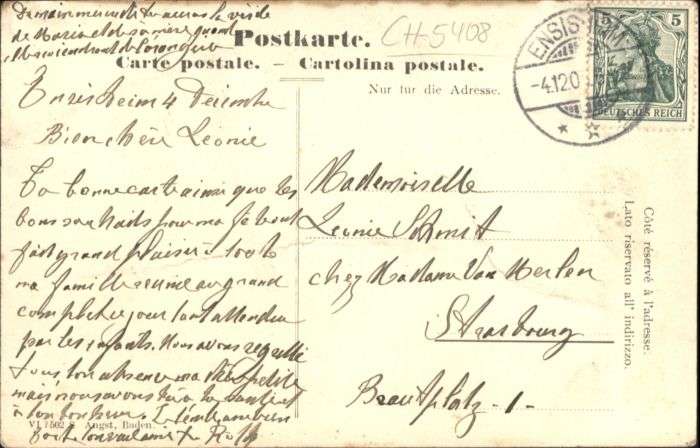 de Maria et de sa mère quand
CH-5408
Postkarte.
Carte postale. – Cartolina postale.
Nur für die Adresse.
ENSISHEIM
-4.12.0
5 5
DEUTSCHES REICH
Ensisheim 4 Décembre
Bien chère Léonie
Ta bonne carte ainsi que tes
bons souhaits pour ma fête ont
fait grand plaisir à toute
ma famille réunie au grand
complet ce jour tant attendu
par les enfants. Nous avons regretté
tous ton absence ma
mais nous savons
à ton bonheur.
Mademoiselle
Léonie Schmit
chez Madame Van Merlen
Strasbourg
Brantplatz - 1 -
Côté réservé à l'adresse.
Lato riservato all' indirizzo.
VI 7502 Angst, Baden.